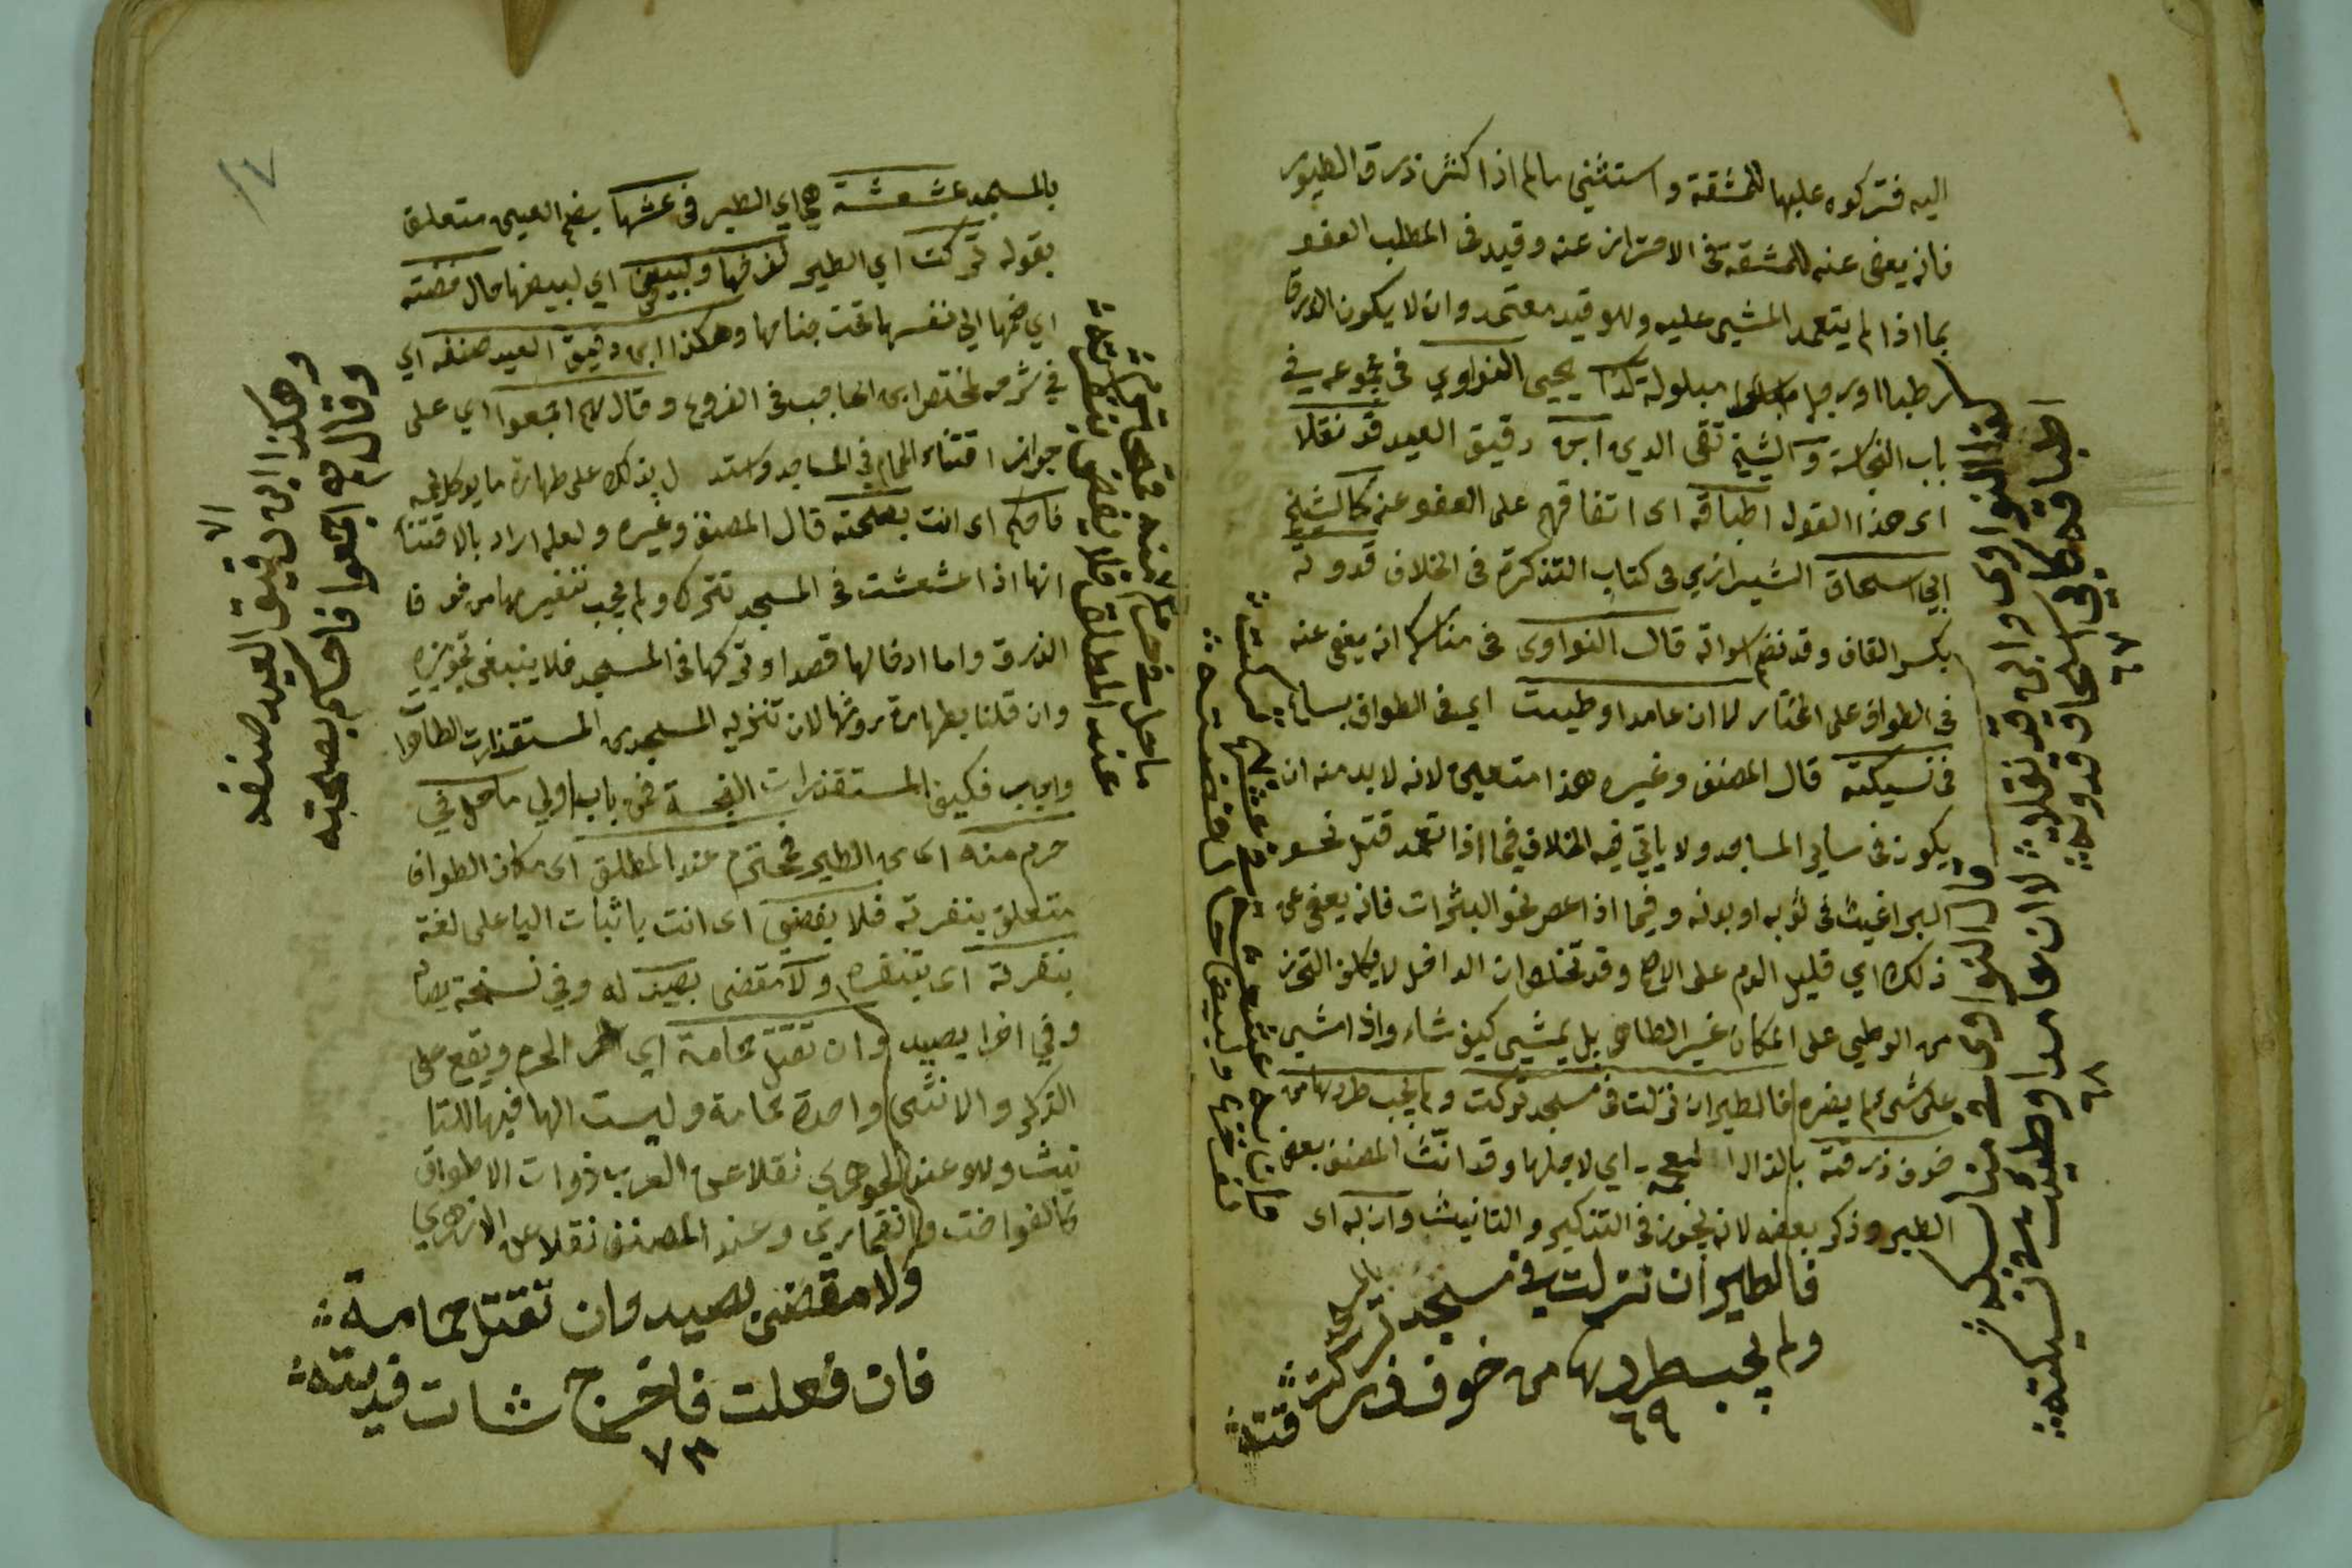 اليه فتركوه عليها للمشقة و استثنى سالم اذا كثر ذرق الطيور
فانه يعفى عنه للمشقة فى الاحتراز عنه وقيد فى المطلب العفو
بما اذا لم يتعمد المشى عليه وهو قيد معتمد وان لا يكون الذرق
رطبا او رجله مبلولة كذا يحيى النواوي فى مجموعه فى
باب النجاسة و الشيخ تقى الدين ابن دقيق العيد قد نقلا
اى هذا القول اطباقه اى اتفاقهم على العفو عنه كالشيخ
ابي اسحاق الشيرازي فى كتاب التذكرة فى الخلاف قدوته
بكسر القاف وقد تضم قال النواوى فى مناسكه انه يعفى عنه
فى الطواف على المختار لا ان عامدا وطيت اي فى الطواف
فى نسيكته قال المصنف وغيره هذا متعين لانه لا بد منه ان
يكون فى ساير المساجد ولا ياتي فيه الخلاف فيما اذا تعمد قتل نحو
البراغيث فى ثوبه او بدنه وفيما اذا عصر نحو البثرات فانه يعفى عن
ذلك اي قليل الدم على الاصح وقد ان الداخل لا يكلف التحرز
من الوطي على المكان غير الطاهر بل يمشي كيف شاء واذا مشى
على شى لم يضره فالطير ان نزلت فى مسجد تركت ولم يجب طردها من
خوف ذرقته بالذال المعجمة اي لاجلها وقد انث المصنف بعض
الطير وذكر بعضه لانه يجوز فى التذكير والتانيث وان له اى
كذا النواوى وابن قد نقلا لا ان عامدا وطيت فى نسيكته
اطباقه كابي اسحاق قدوته
٦٧
قال النواوى فى مناسكه
٦٨
فالطير ان نزلت فى مسجد تركت
ولم يجب طردها من خوف ذرقته
٦٩
فى عشها تركت
لفرخها ولبيض حال حضنته
بالمسجد عشعشة هي اي الطير فى عشها بضم العين متعلق
بقوله تركت اي الطير لفرخها ولبيض اي لبيضها حال حضنته
اي ضمها الى نفسها تحت جناحها وهكذا ابن دقيق العيد صنفه اي
في شرحه لمختصر ابن الحاجب فى الفروع وقال هم اجمعوا اي على
جواز اقتناء الحمام في المساجد واستدل بذلك على طهارة ما يوكل لحمه
فاحكم اى انت بصحته قال المصنف وغيره ولعله اراد بالاقتنا
انها اذا عشعشت فى المسجد تترك ولم يجب تنفيرها من خوف
الذرق واما ادخالها قصدا وتركها فى المسجد فلا ينبغى تجويزه
وان قلنا بطهارة روثها لان تنزيه المسجد من المستقذرات الطاهرة
واجب فكيف المستقذرات النجسة فمن باب اولي ما حل في
حرم منه اى من الطير فمحترم عند المطاف اى مكان الطواف
متعلق بنفرته فلا يفضي اى انت باثبات اليا على لغة
بنفرته اى بتنفره ولا مقضى بصيد له وفي نسخة
وفي اخرا يصيد وان تقتل حمامة اي الحرم ويقع على
الذكر والانثى واحدة حمامة وليست الها فيها للتا
نيث وهو عند الجوهري نقلا عن العرب ذوات الاطواق
كالفواخت والقماري وعند المصنف نقلا عن الازهري
وهكذا ابن دقيق العيد صنفه
وقال هم اجمعوا فاحكم بصحته
٧١
ما حل فى حرم منه فمحترم
ولا مقضى بصيد وان تقتل حمامة
فان فعلت فاخرج شات فديته
٧٣